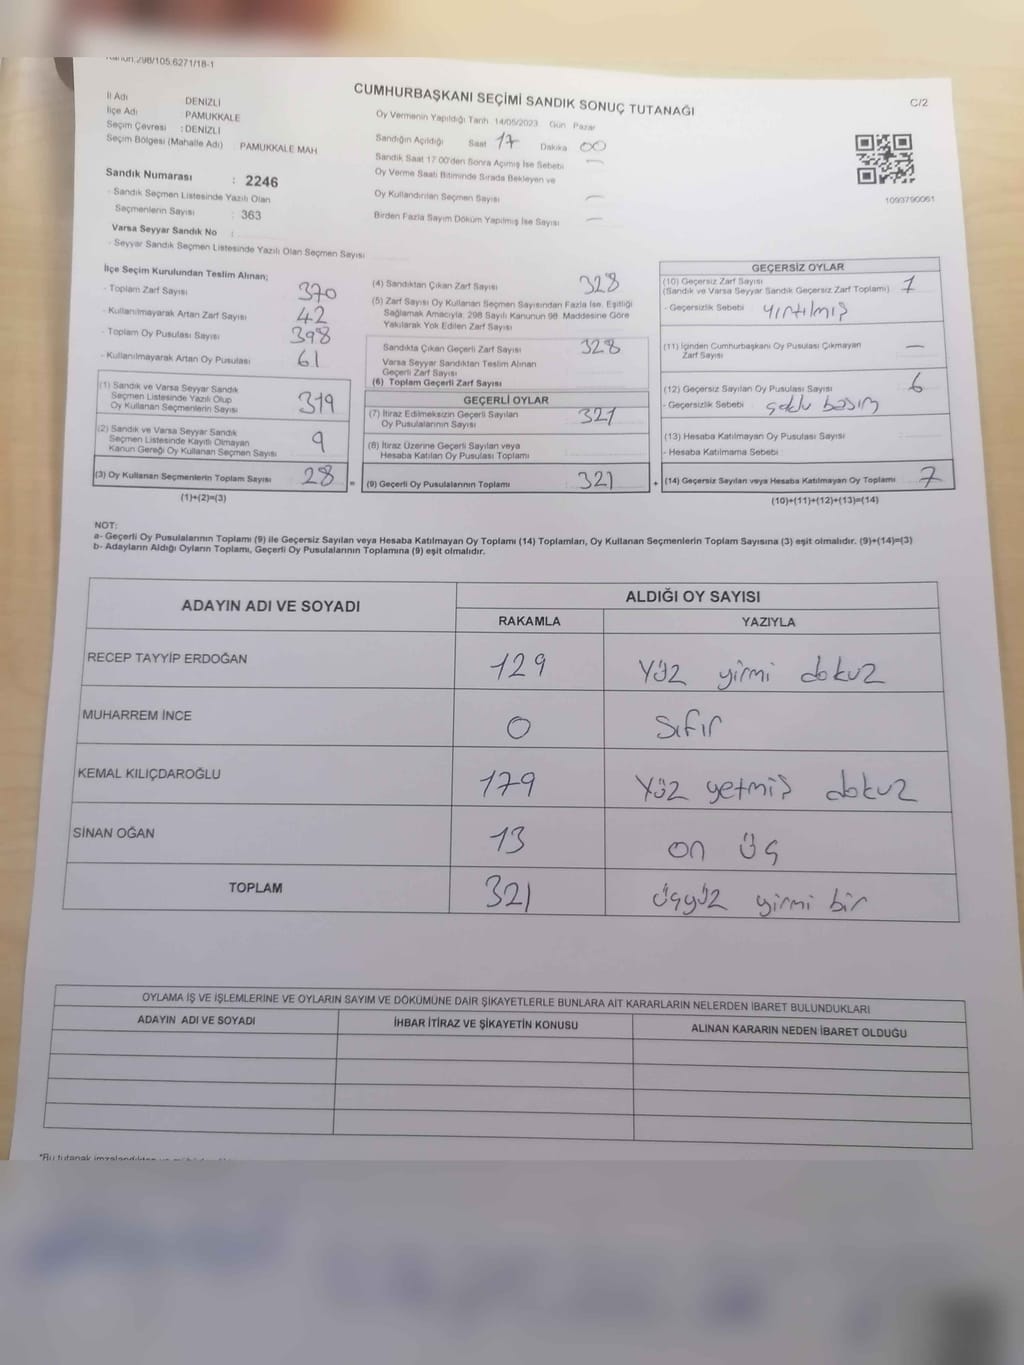 Kanun:298/105.6271/18-1
CUMHURBAŞKANI SEÇİMİ SANDIK SONUÇ TUTANAĞI
C/2
İl Adı DENİZLİ
İlçe Adı PAMUKKALE
Seçim Çevresi : DENİZLİ
Seçim Bölgesi (Mahalle Adı) PAMUKKALE MAH.
Sandık Numarası : 2246
- Sandık Seçmen Listesinde Yazılı Olan
Seçmenlerin Sayısı : 363
Varsa Seyyar Sandık No :
- Seyyar Sandık Seçmen Listesinde Yazılı Olan Seçmen Sayısı
Oy Vermenin Yapıldığı Tarih 14/05/2023 Gün Pazar
Sandığın Açıldığı Saat 17 Dakika 00
Sandık Saat 17.00'den Sonra Açımış İse Sebebi —
Oy Verme Saati Bitiminde Sırada Bekleyen ve
Oy Kullandırılan Seçmen Sayısı —
Birden Fazla Sayım Döküm Yapılmış İse Sayısı —
1093790061
İlçe Seçim Kurulundan Teslim Alınan;
- Toplam Zarf Sayısı 370
- Kullanılmayarak Artan Zarf Sayısı 42
- Toplam Oy Pusulası Sayısı 398
- Kullanılmayarak Artan Oy Pusulası 61
(1) Sandık ve Varsa Seyyar Sandık
Seçmen Listesinde Yazılı Olup
Oy Kullanan Seçmenlerin Sayısı 319
(2) Sandık ve Varsa Seyyar Sandık
Seçmen Listesinde Kayıtlı Olmayan
Kanun Gereği Oy Kullanan Seçmen Sayısı 9
(3) Oy Kullanan Seçmenlerin Toplam Sayısı 28 =
(1)+(2)=(3)
(4) Sandıktan Çıkan Zarf Sayısı 328
(5) Zarf Sayısı Oy Kullanan Seçmen Sayısından Fazla İse, Eşitliği
Sağlamak Amacıyla; 298 Sayılı Kanunun 98. Maddesine Göre
Yakılarak Yok Edilen Zarf Sayısı
Sandıkta Çıkan Geçerli Zarf Sayısı 328
Varsa Seyyar Sandıktan Teslim Alınan
Geçerli Zarf Sayısı
(6) Toplam Geçerli Zarf Sayısı
GEÇERLİ OYLAR
(7) İtiraz Edilmeksizin Geçerli Sayılan
Oy Pusulalarının Sayısı 321
(8) İtiraz Üzerine Geçerli Sayılan veya
Hesaba Katılan Oy Pusulası Toplamı
(9) Geçerli Oy Pusulalarının Toplamı 321 +
GEÇERSİZ OYLAR
(10) Geçersiz Zarf Sayısı
(Sandık ve Varsa Seyyar Sandık Geçersiz Zarf Toplamı) 1
- Geçersizlik Sebebi yırtılmış
(11) İçinden Cumhurbaşkanı Oy Pusulası Çıkmayan
Zarf Sayısı —
(12) Geçersiz Sayılan Oy Pusulası Sayısı 6
- Geçersizlik Sebebi basım
(13) Hesaba Katılmayan Oy Pusulası Sayısı
- Hesaba Katılmama Sebebi
(14) Geçersiz Sayılan veya Hesaba Katılmayan Oy Toplamı 7
(10)+(11)+(12)+(13)=(14)
NOT:
a- Geçerli Oy Pusulalarının Toplamı (9) ile Geçersiz Sayılan veya Hesaba Katılmayan Oy Toplamı (14) Toplamları, Oy Kullanan Seçmenlerin Toplam Sayısına (3) eşit olmalıdır. (9)+(14)=(3)
b- Adayların Aldığı Oyların Toplamı, Geçerli Oy Pusulalarının Toplamına (9) eşit olmalıdır.
ADAYIN ADI VE SOYADI ALDIĞI OY SAYISI
RAKAMLA YAZIYLA
RECEP TAYYİP ERDOĞAN 129 Yüz yirmi dokuz
MUHARREM İNCE 0 Sıfır
KEMAL KILIÇDAROĞLU 179 Yüz yetmiş dokuz
SİNAN OĞAN 13 on üç
TOPLAM 321 üçyüz yirmi bir
OYLAMA İŞ VE İŞLEMLERİNE VE OYLARIN SAYIM VE DÖKÜMÜNE DAİR ŞİKAYETLERLE BUNLARA AİT KARARLARIN NELERDEN İBARET BULUNDUKLARI
ADAYIN ADI VE SOYADI İHBAR İTİRAZ VE ŞİKAYETİN KONUSU ALINAN KARARIN NEDEN İBARET OLDUĞU
*Bu tutanak